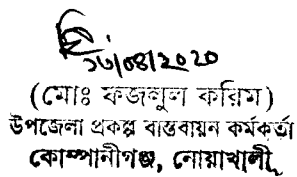 ১৬/০৪/২০২০
(মোঃ ফজলুল করিম)
উপজেলা প্রকল্প বাস্তবায়ন কর্মকর্তা
কোম্পানীগঞ্জ, নোয়াখালী